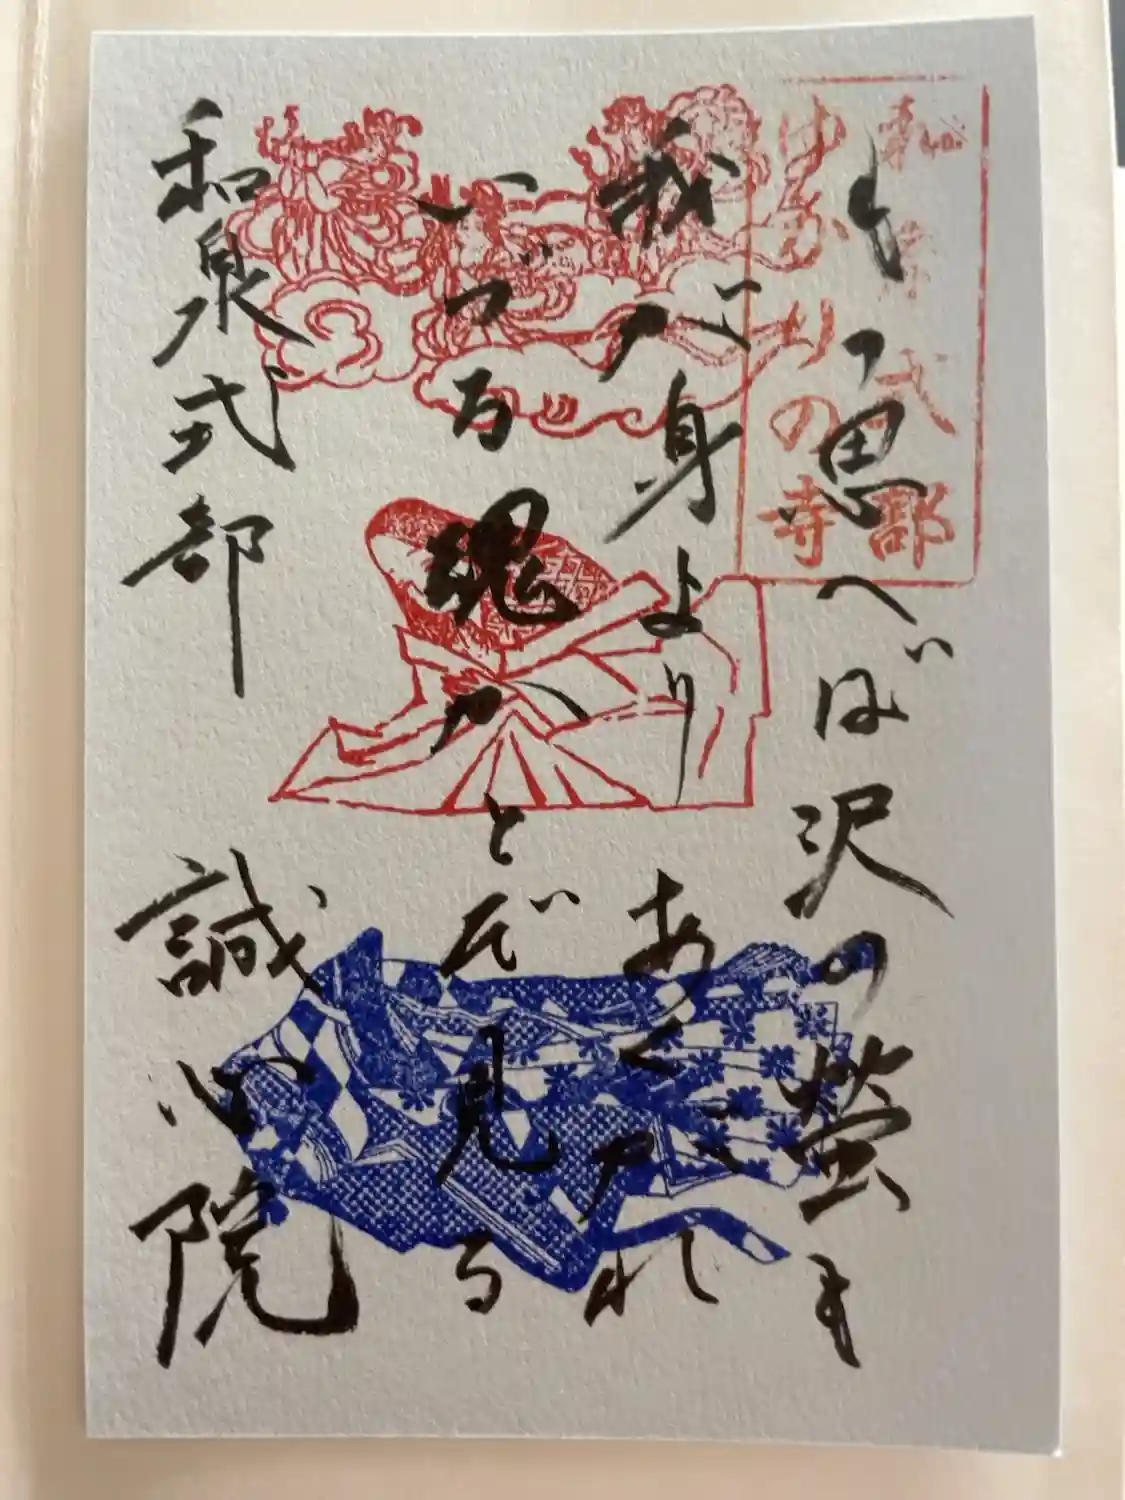 和泉式部
ゆかりの寺
もの思へば沢の蛍も
我が身よりあくがれ
いづる魂かとぞ見る
和泉式部 誠心院